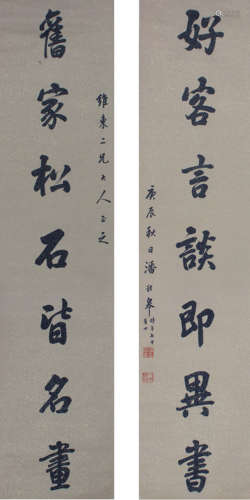 好客言談即異書
庚辰秋日潘齡皋
舊家松石皆名畫
維東二兄大人正之